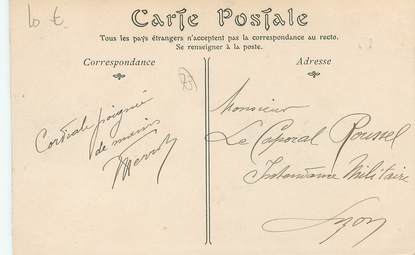 10 €
Carte Postale
Tous les pays étrangers n'acceptent pas la correspondance au recto.
Se renseigner à la poste.
Correspondance
Adresse
Cordiale poignée
de mains
Monsieur
Le Caporal Roussel
Intendance Militaire
Lyon